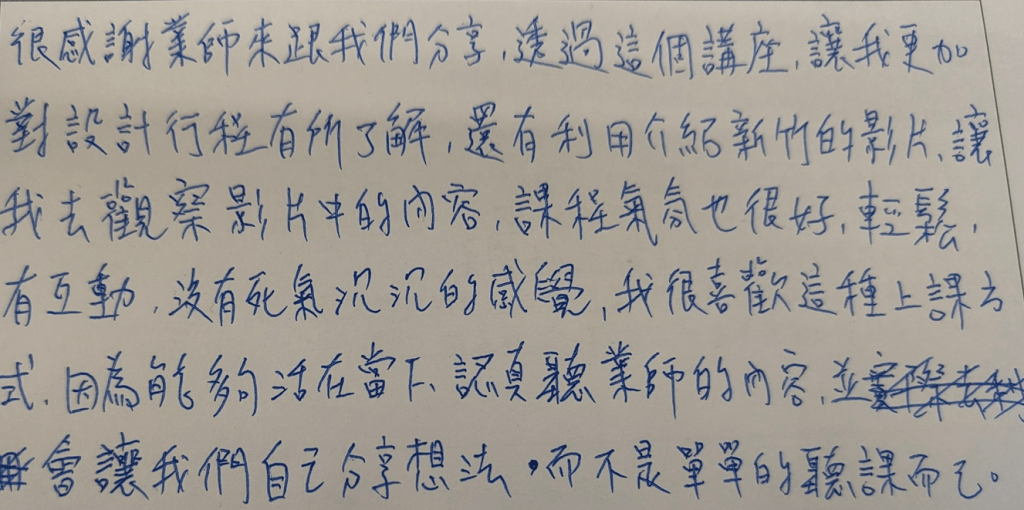 很感謝業師來跟我們分享,透過這個講座,讓我更加
對設計行程有所了解,還有利用介紹新竹的影片,讓
我去觀察影片中的內容,課程氣氛也很好,輕鬆,
有互動,沒有死氣沉沉的感覺,我很喜歡這種上課方
式,因為能夠活在當下,認真聽業師的內容,並
會讓我們自己分享想法,而不是單單的聽課而已。